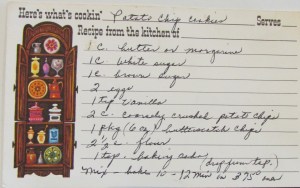 Here's what's cookin' Potato Chip Cookies Serves
Recipe from the kitchen of
1 C. butter or margerine
1 C white sugar
1 C. brown sugar
2 eggs
1 tsp vanilla
2 c. coarsely crushed potato chips
1 pkg (6 oz) butterscotch chips
2 1/2 c. flour
1 tsp. baking soda
(drop from tsp.)
Mix - bake 10 - 12 min in 375° oven